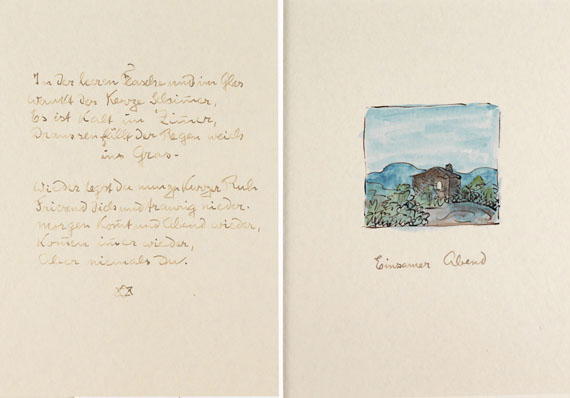 In der leeren Flasche und im Glas
Wankt der Kerze Schimmer,
Es ist kalt im Zim̄er,
Draussen fällt der Regen weich
ins Gras.
Wieder legst du nun zu kurzer Ruh
Frierend dich und traurig nieder.
Morgen kom̄t und Abend wieder,
Kom̄en im̄er wieder,
Aber niemals du.
Einsamer Abend